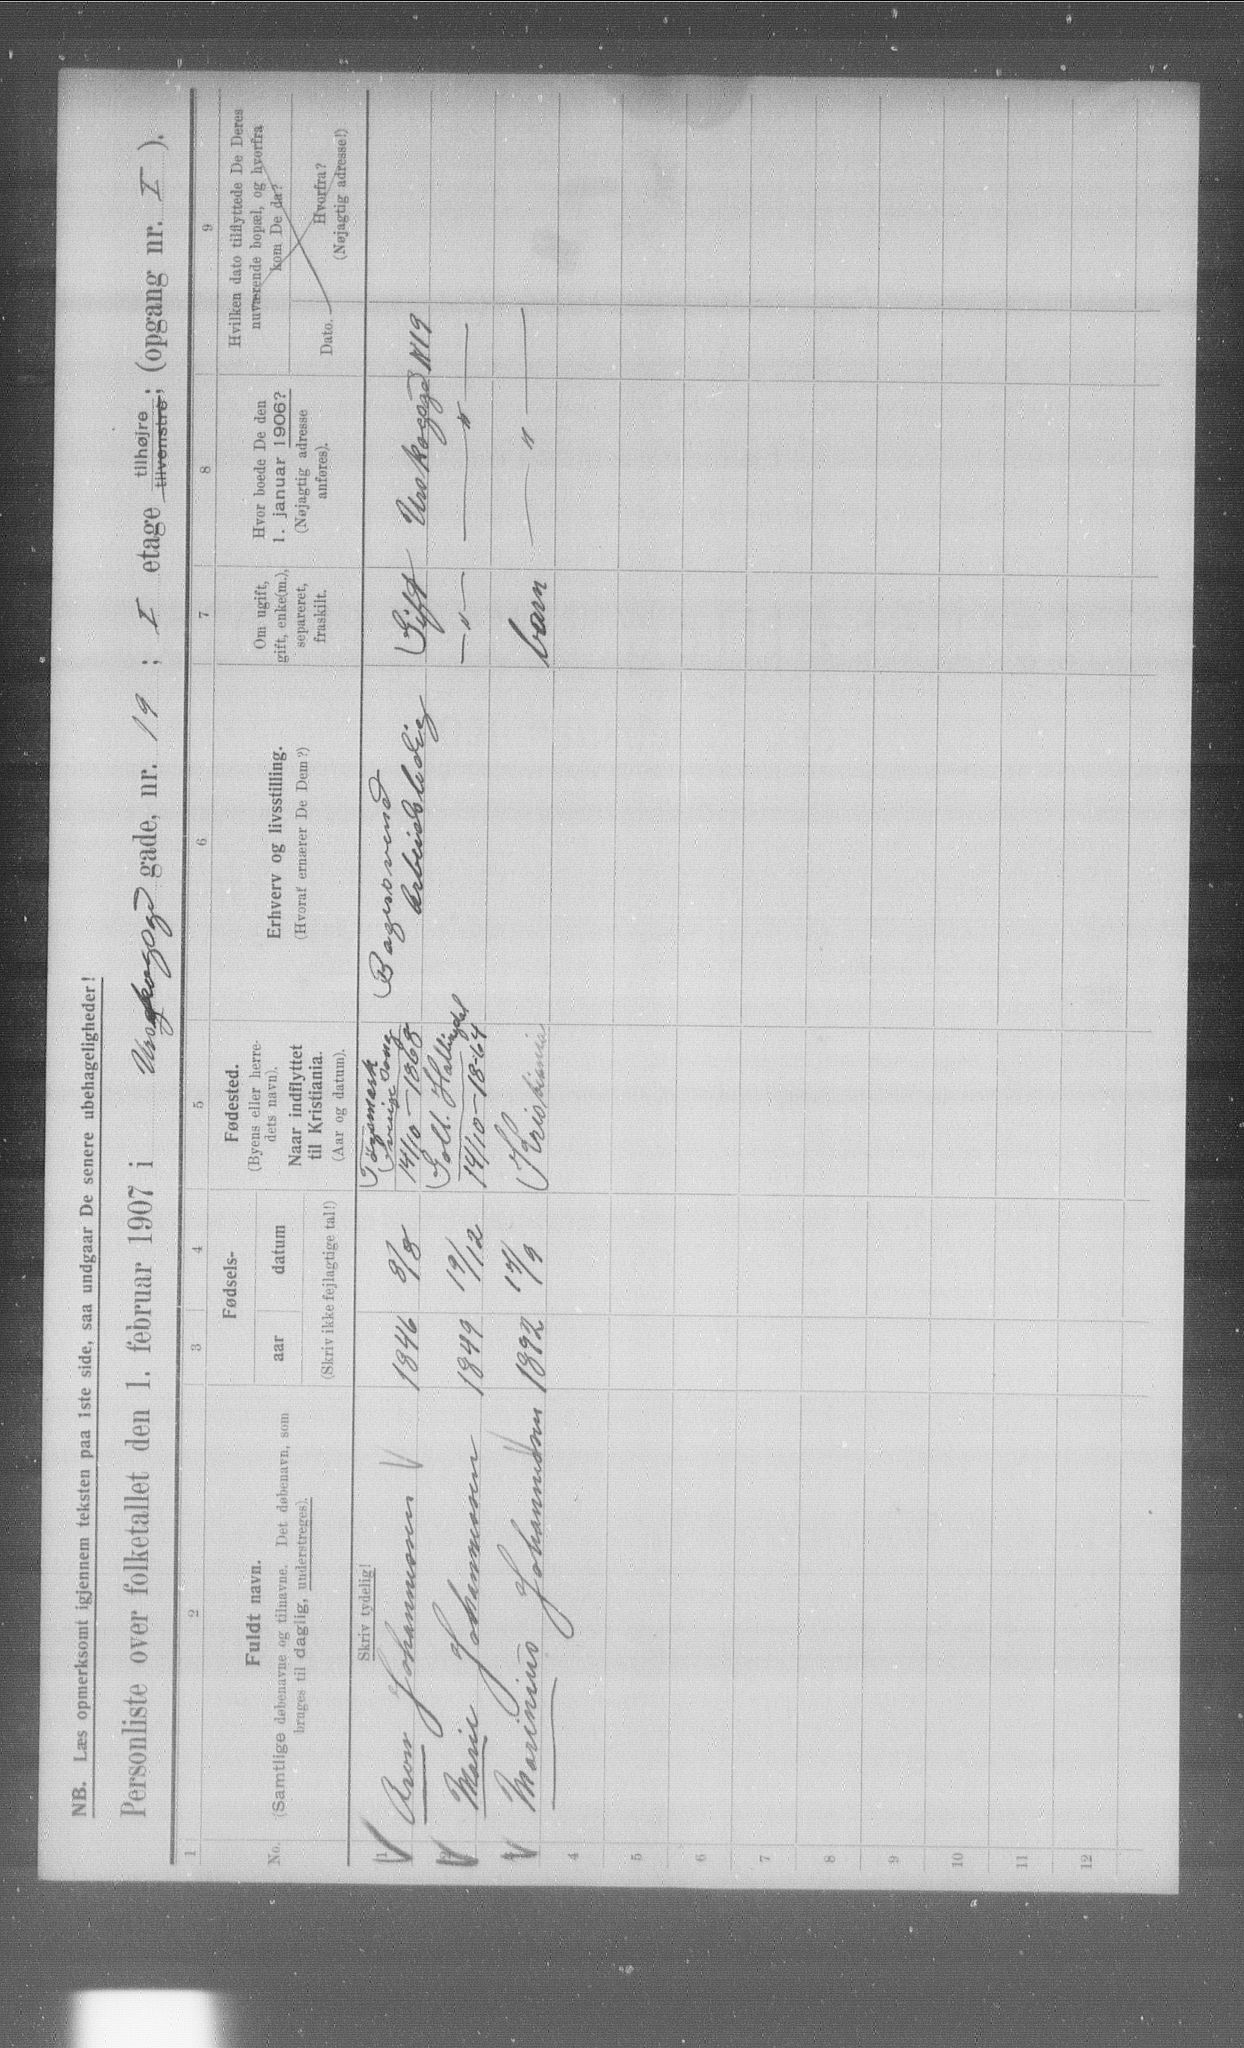 NB. Læs opmerksomt igjennem teksten paa 1ste side, saa undgaar De senere ubehageligheder!
Personliste over folketallet den 1. februar 1907 i gade, nr. 19 ; I etage tilhøjre tilvenstre; (opgang nr. I ).
1 2 3 4 5 6 7 8 9
No.
Fuldt navn.
(Samtlige døbenavne og tilnavne. Det døbenavn, som
bruges til daglig, understreges).
Fødsels-
aar datum
(Skriv ikke fejlagtige tal!)
Fødested.
(Byens eller herre-
dets navn).
Naar indflyttet
til Kristiania.
(Aar og datum).
Erhverv og livsstilling.
(Hvoraf ernærer De Dem?)
Om ugift,
gift, enke(m.),
separeret,
fraskilt.
Hvor boede De den
1. januar 1906?
(Nøjagtig adresse
anføres).
Hvilken dato tilflyttede De Deres
nuværende bopæl, og hvorfra
kom De da?
Dato.
Hvorfra?
(Nøjagtig adresse!)
Skriv tydelig!
1 Johannesen 1846 8/8 14/10-1868 Bagersvend Arbeidsledig Gift N19
2 Marie Johannesen 1849 19/12 Goll. Hallingdal 14/10-1864 — " — — " —
3 Marinius Johannesen 1892 17/9 Kristiania barn — " —
4
5
6
7
8
9
10
11
12